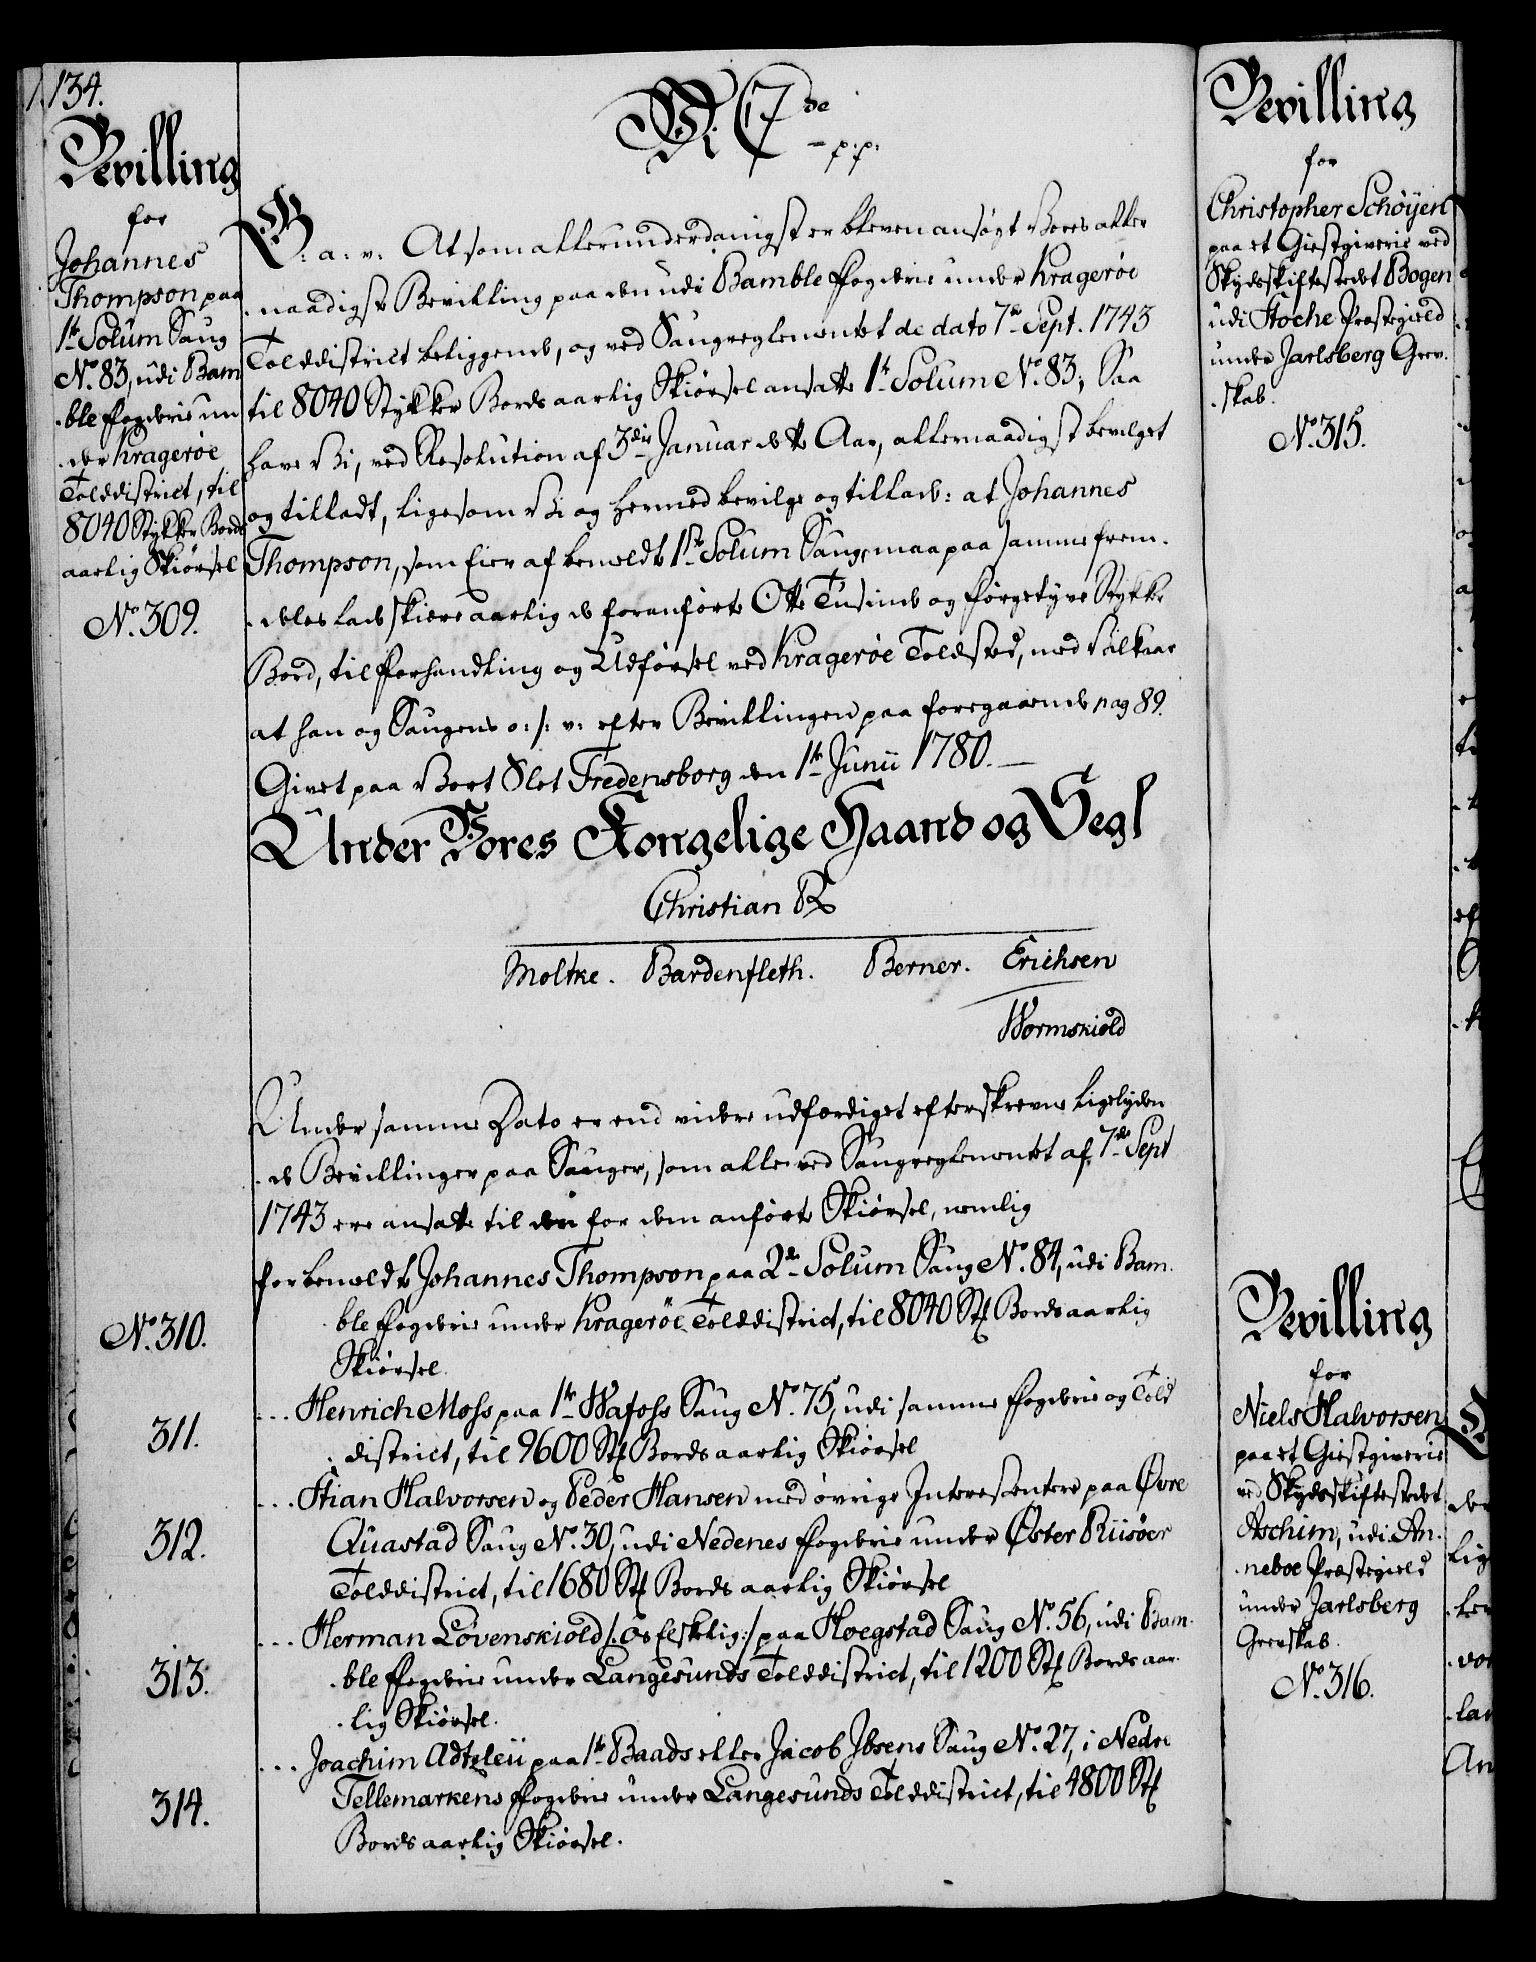 134.
Bevilling
for
Johannes
Thompson paa
1te Solum Saug
No. 83, udi Bam
-ble Fogderie un
-der Kragerøe
Tolddistrict, til
8040 Stykker Bords
aarlig Skiørsel
No. 309.
Vi C 7de
- p:p:
G: a: v: At som allerunderdanigst er bleven ansøgt Vores aller
-naadigste Bevilling paa den udi Bamble Fogderie under Kragerøe
Tolddistrict beliggende, og ved Saugreglementet de dato 7de Sept. 1743
til 8040 Stykker Bords aarlig Skiørsel ansatte 1te Solum No. 83; Saa
have Vi, ved Resolution af 3die Januar dette Aar, allernaadigst bevilget
og tilladt, ligesom Vi og hermed bevilge og tillade: at Johannes
Thompson, som Eier af bemeldte 1ste Solum Saug, maa paa samme frem-
-deles lade skiære aarlig de foranførte Otte Tusinde og førgetyve Stykker
Bord, til Forhandling og Udførsel ved Kragerøe Toldsted, med Vilkaar
at han og Saugens o: s: v: efter Bevillingen paa foregaaende pag 89.
Givet paa Vort Slot Fredensborg den 1te Junii 1780. —
Under Vores Kongelige Haand og Segl
Christian R
Moltke. Bardenfleth. Berner. Erichsen
Wormskiold
Under samme Dato er end videre udfærdiget efterskrevne ligelyden
-de Bevillinger paa Sauger, som alle ved Saugreglementet af 7de Sept
1743 ere ansatte til den for dem anførte Skiørsel, nemlig
for bemeldte Johannes Thompson paa 2de Solum Saug No. 84, udi Bam-
-ble Fogderie under Kragerøe Tolddistrict, til 8040 St. Bords aarlig
No. 310.
Skiørsel.
... Henrich Moss paa 1te Wafoss Saug No. 75, udi samme Fogderie og Told
311.
-district, til 9600 St. Bords aarlig Skiørsel
... Stian Halvorsen og Peder Hansen med øvrige Interessentere paa Øvre
312.
Quastad Saug No. 30, udi Nedenes Fogderie under Øster Riisøer
Tolddistrict, til 1680 St. Bords aarlig Skiørsel
... Herman Løvenskiold /: Os Elskelig :/ paa Hoegstad Saug No. 56, udi Bam-
313.
-ble Fogderie under Langesunds Tolddistrict, til 1200 St. Bords aar-
-lig Skiørsel.
... Joachim Adtzleii paa 1te Baads eller Jacob Ibsens Saug No. 27, i Nedre
314.
Tellemarkens Fogderie under Langesunds Tolddistrict, til 4800 St.
Bords aarlig Skiørsel.
Bevilling
for
Christopher Schøyen
paa et Giestgiverie ved
Skydsskiftestedet Bogen
udi Stoche Præstegield
under Jarlsberg Grev-
-skab.
No. 315.
Bevilling
for
Niels Halvorsen
paa et Giestgiverie
ved Skydsskiftestedet
Aschim, udi An-
-neboe Præstegield
under Jarlsberg
Grevskab.
No. 316.